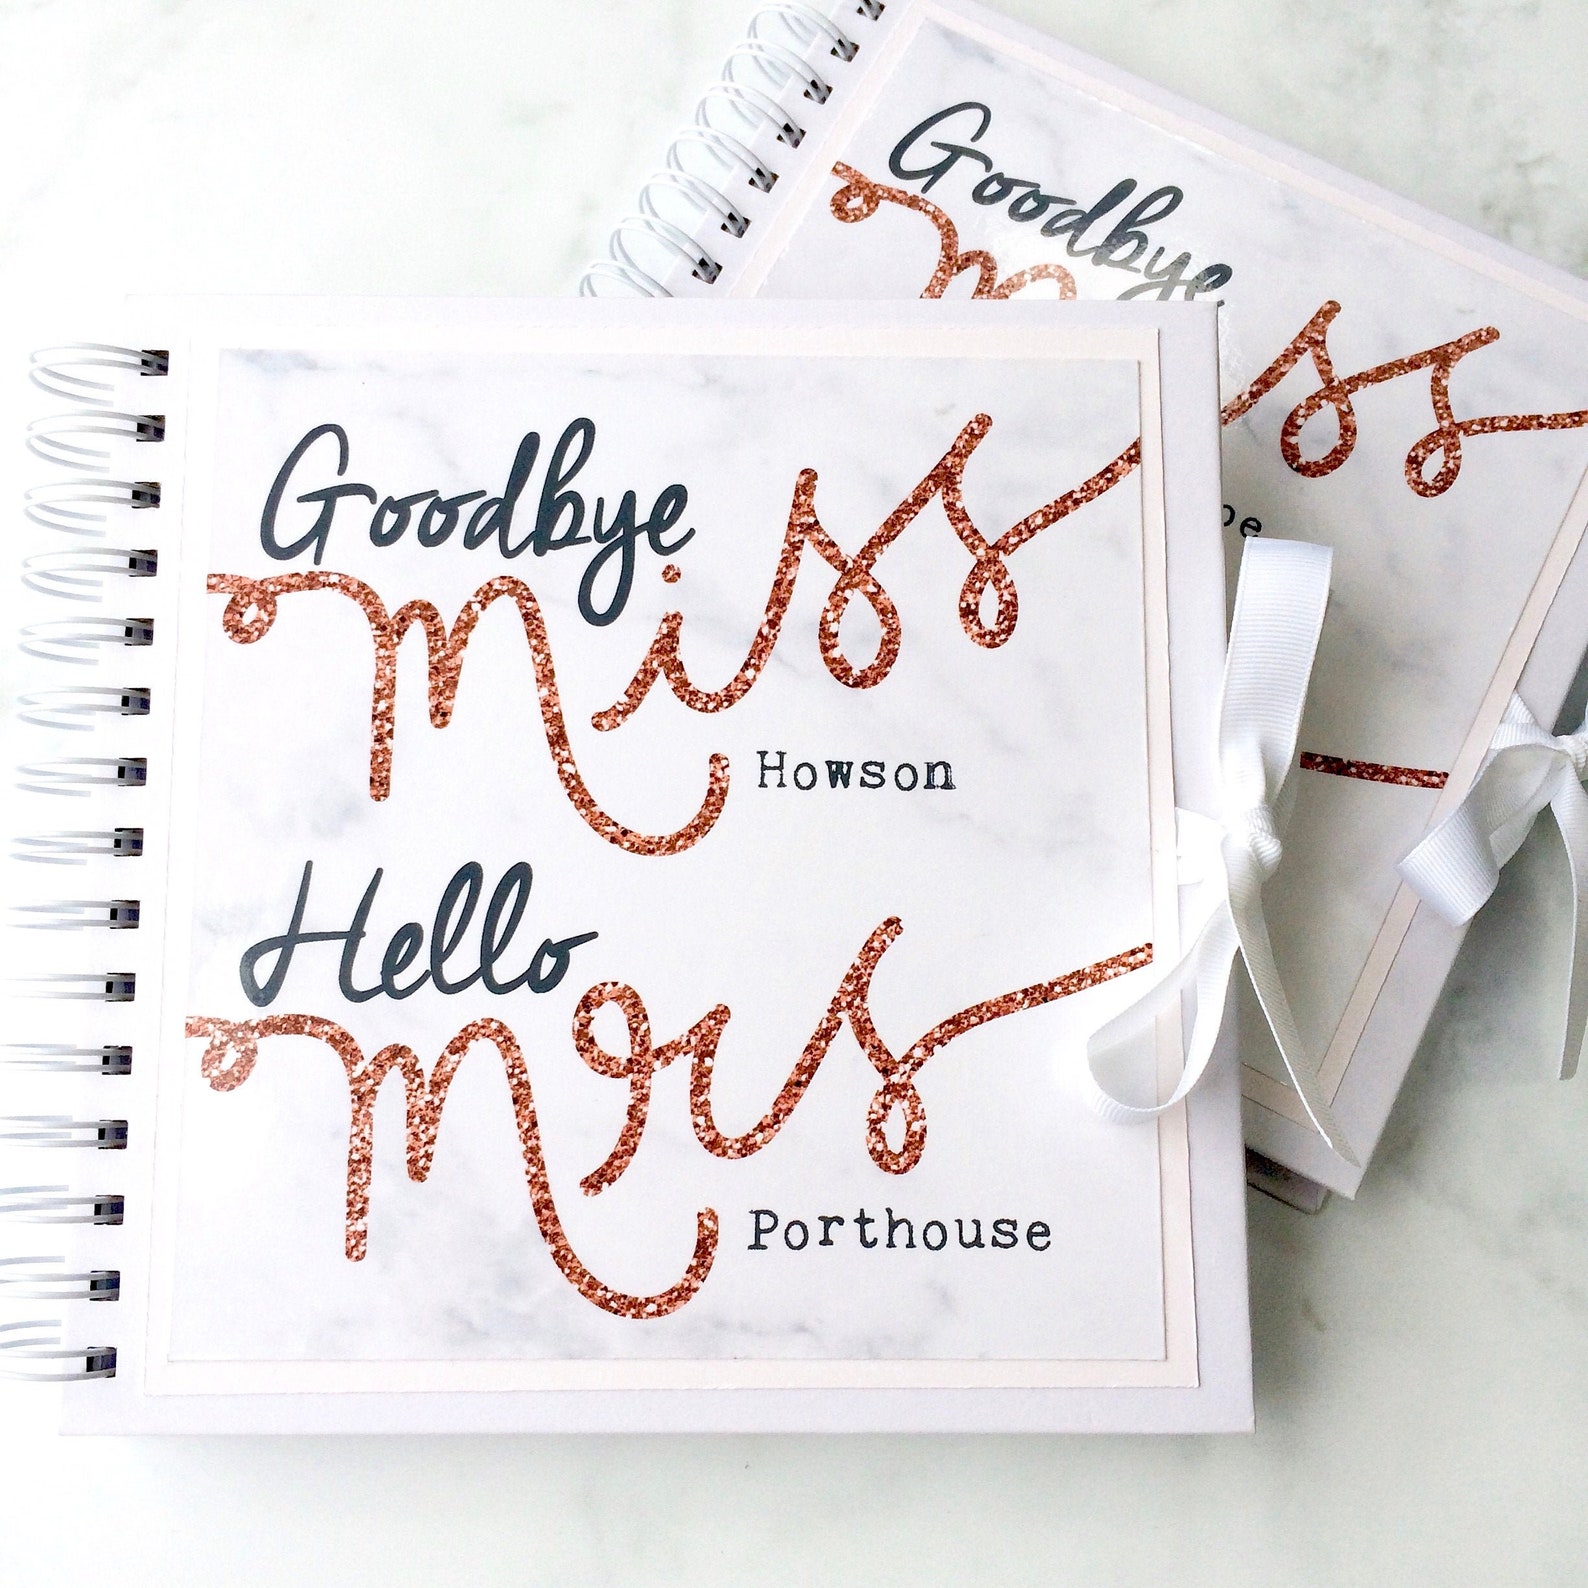 Goodbye
miss
Howson
Hello
mrs
Porthouse
Goodbye
miss